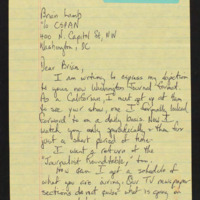 Brian Lamb
% CSPAN
400 N. Capitol St, NW
Washington, DC
Dear Brian,
I am writing to express my objection
to your new Washington Journal format.
As a Californian, I must get up at 4am
to see your show, one I formerly looked
forward to on a daily basis. Now I
watch you only sporadically, & then for
just a short period of time.
I want a return of the
"Journalist Roundtable," too.
How can I get a schedule of
what you are airing. Our TV newspaper
sections do not print what is going on